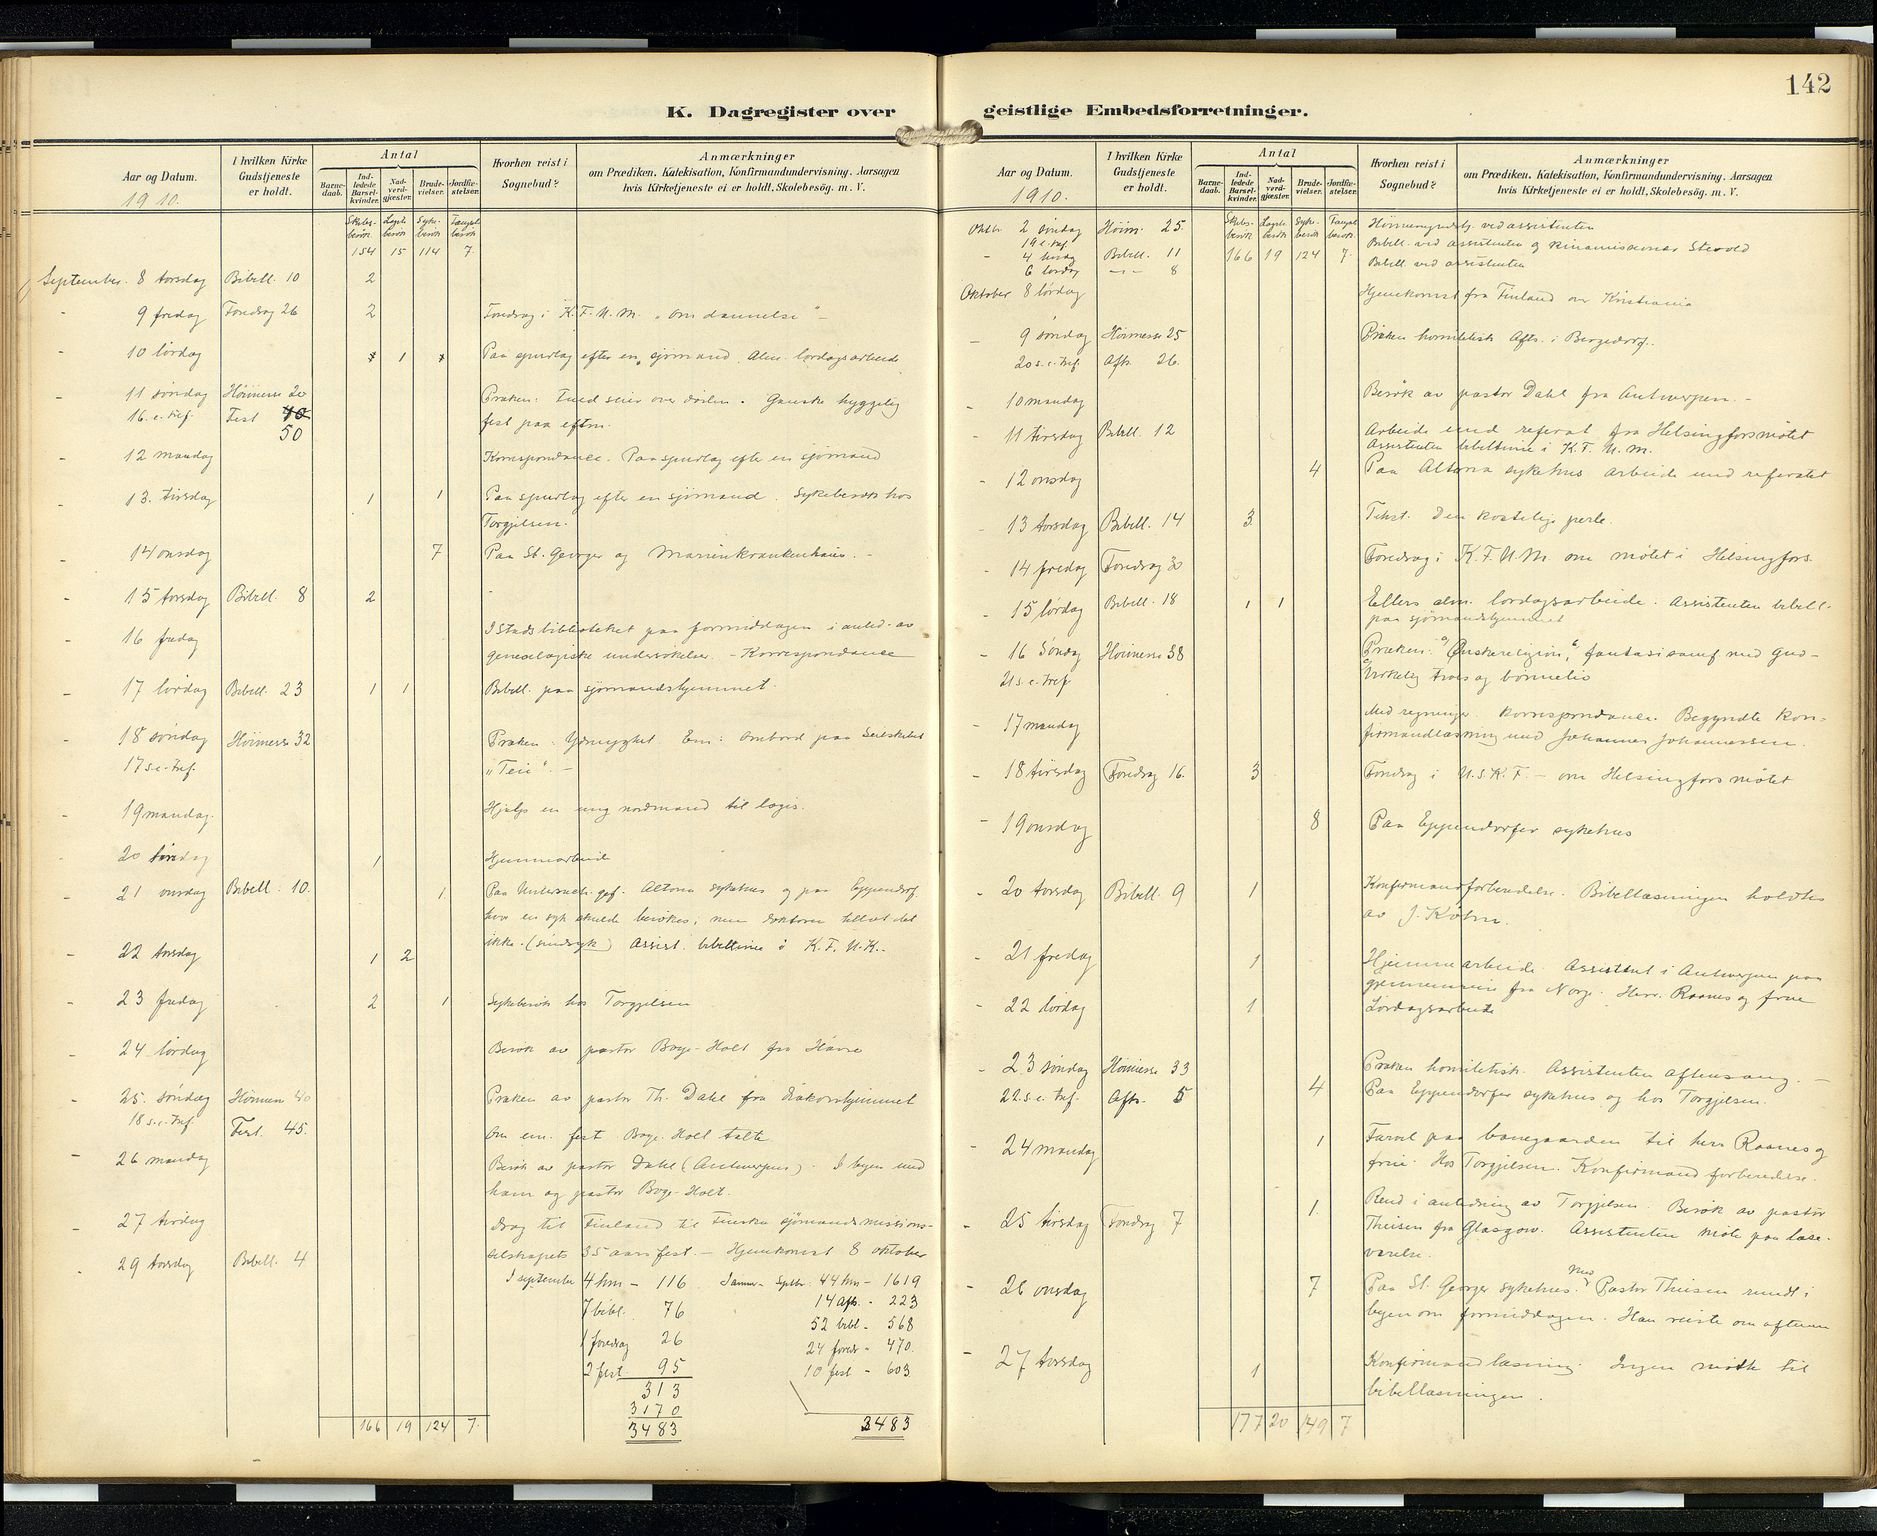 142
K. Dagregister over geistlige Embedsforretninger.
Aar og Datum.
1910.
I hvilken Kirke Gudstjeneste er holdt.
Antal
Barnedaab.
Indledede Barselkvinder.
Nadverdgjæster.
Brudevielser.
Jordfæstelser.
Hvorhen reist i Sognebud?
Anmærkninger
om Prædiken, Katekisation, Konfirmandundervisning, Aarsagen
hvis Kirketjeneste ei er holdt, Skolebesøg. m. V.
Skibsbesøk Syke-besøk
154 15 114 7
September 8 torsdag Bibell. 10 2
9 fredag Foredrag 26 2 Foredrag i K.F.U.M. "Om dannelse" -
10 lørdag 1 Paa spurlag efter en sjømand. Alm. lørdagsarbeide
11 søndag Høimesse 20 Præken: Fred seier over døden. Ganske hyggelig
16. e. tref. Fest 40 fest paa eftm.
50
12 mandag Korrespondance. Paa spurlag efter en sjømand
13. tirsdag 1 1 Paa spurlag efter en sjømand. Sykebesøk hos
Torgjelsen.
14 onsdag 7 Paa St. Georger og Marienkrankenhaus. -
15 torsdag Bibell. 8 2
16 fredag I Stadsbiblioteket paa formiddagen i anled. av
genealogiske undersøkelser. - Korrespondance
17 lørdag Bibell. 23 1 1 Bibell. paa sjømandshjemmet.
18 søndag Høimesse 32 Præken: Ydmyghet. Em: Ombord paa Seilskibet
17 s.e. tref. "Teie". -
19 mandag. Hjalp en ung nordmand til logis.
20 1 Hjemmearbeide
21 onsdag Bibell. 10. 1 Paa Untersuch. gef. Altona sykehus og paa Eppendorf.
hvor en syk skulde besøkes; men doktoren tillot det
ikke. (sindsyk) Assist. bibeltime i K.F.U.K.-
22 torsdag 1 2
23 fredag 2 1 Sykebesøk hos Torgjelsen
24 lørdag Besøk av pastor Boye-Holt fra Havre
25. søndag Høimesse 40 Præken av pastor Th. Dahl fra Diakonhjemmet
18 s.e. tref. Fest. 45. Om em. fest. Boye-Holt talte
26 mandag Besøk av pastor Dahl (Antwerpen). I byen med
ham og pastor Boye-Holt.
27 tirsdag drog til Finland til Finska sjømandsmissions-
selskapets 35 aars fest. - Hjemkomst 8 oktober
29 torsdag Bibell. 4
I september 4 hm - 116 Januar - Septbr. 44 hm - 1619
7 bibl. 76 14 Afts. - 223
1 foredrag 26 52 bibl - 568
2 fest 95 24 foredr - 470.
313 10 fest - 603
3170
3483 3483
166 19 124 7.
Aar og Datum.
1910.
I hvilken Kirke Gudstjeneste er holdt.
Antal
Barnedaab.
Indledede Barselkvinder.
Nadverdgjæster.
Brudevielser.
Jordfæstelser.
Hvorhen reist i Sognebud?
Anmærkninger
om Prædiken, Katekisation, Konfirmandundervisning, Aarsagen
hvis Kirketjeneste ei er holdt, Skolebesøg. m. V.
Oktbr. 2 søndag Høim. 25 ved assistenten
19 e. tref. Bibell. ved assistenten og Kinamissionær Stevold
4 tirsdag Bibell. 11 166 19 124 7 Bibell. ved assistenten
6 - " - 8
Oktober 8 lørdag Hjemkomst fra Finland over Kristiania
9 søndag Høimesse 25 Præken homiletisk Afts. i Bergedorf.
20 s.e. tref. Afts. 26.
10 mandag Besøk av pastor Dahl fra Antwerpen. -
11 tirsdag Bibell. 12 Arbeide med referat fra Helsingforsmøtet
Assistenten bibeltime i K.F.U.M.
12 onsdag 4 Paa Altona sykehus arbeide med referatet
13 torsdag Bibell. 14 3 Tekst. Den kostelige perle.
14 fredag Foredrag 30 Foredrag i K.F.U.M. om møtet i Helsingfors.
15 lørdag Bibell. 18 1 1 Ellers alm. lørdagsarbeide. Assistenten bibell.
paa sjømandshjemmet
16 Søndag Høimesse 38 Præken: Ønskereligion, fantasisamf. med Gud -
21 s. e. tref. Virkelig troes og bønneliv
17 mandag Med regninger. Korrespondance. Begyndte kon-
firmandlæsning med Johannes Johannessen.
18 tirsdag Foredrag 16. 3 Foredrag i U.S.K.F. - om Helsingforsmøtet
19 onsdag 8 Paa Eppendorfer sykehus
20 torsdag Bibell. 9 1 Konfirmandforberedelse. Bibellæsningen holdtes
av J. Køhn.
21 fredag 1 Hjemmearbeide. Assistent i Antwerpen paa
gjennemreise fra Norge. Herr. Raanes og frue
22 lørdag 1 Lørdagsarbeide
23 søndag Høimesse 33 Præken homiletisk. Assistenten aftensang. -
22. s. e. tref. Afts. 5 4 Paa Eppendorfer sykehus og hos Torgjelsen.
24 mandag 1 Farvel paa banegaarden til herr Raanes og
frue. Hos Torgjelsen. Konfirmandforberedelse.
25 tirsdag Foredrag 7 1. Rend i anledning av Torgjelsen. Besøk av pastor
Theisen fra Glasgow. Assistenten møte paa læse-
værelse.
26 onsdag 7 Paa St. Georger sykehus. Med Pastor Theisen rundt i
byen om formiddagen. Han reiste om aftenen
27 torsdag 1 Konfirmandlæsning. Ingen møtte til
bibellæsningen.
177 20 149 7